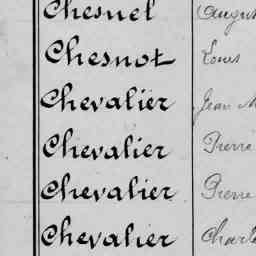 Chesnel
Chesnot Louis
Chevalier Jean
Chevalier Pierre
Chevalier Pierre
Chevalier